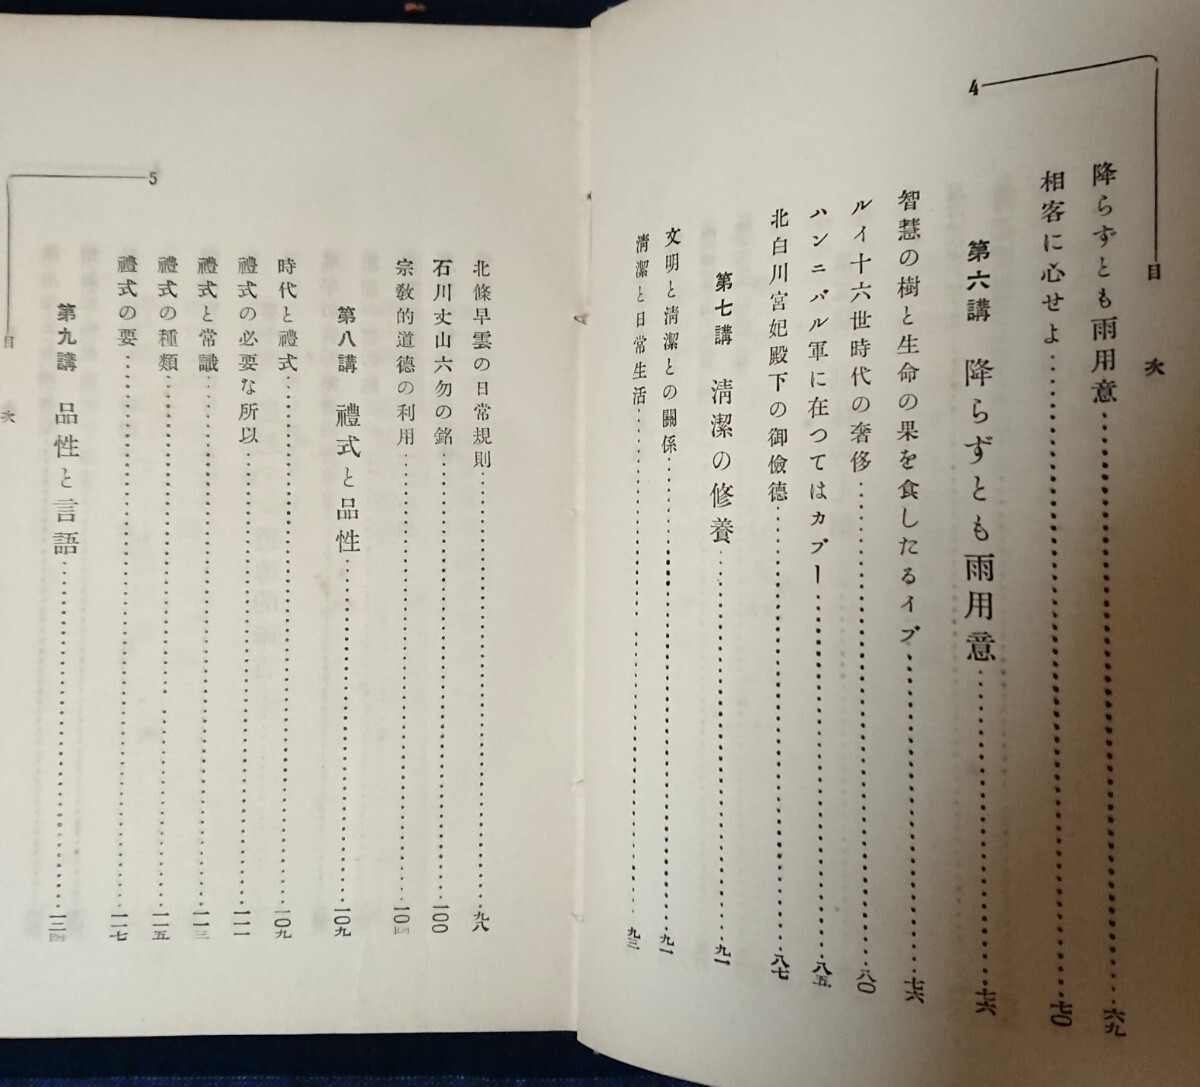 4
目次
降らずとも雨用意……六九
相客に心せよ……七〇
第六講 降らずとも雨用意……七六
智慧の樹と生命の果を食したるイブ……七六
ルイ十六世時代の奢侈……八〇
ハンニバル軍に在つてはカプー……八五
北白川宮妃殿下の御儉德……八七
第七講 淸潔の修養……九一
文明と淸潔との關係……九一
淸潔と日常生活……九三
5
目次
北條早雲の日常規則……九八
石川丈山六勿の銘……一〇〇
宗敎的道德の利用……一〇四
第八講 禮式と品性……一〇九
時代と禮式……一〇九
禮式の必要な所以……一一一
禮式と常識……一一三
禮式の種類……一一五
禮式の要……一一七
第九講 品性と言語……一二四